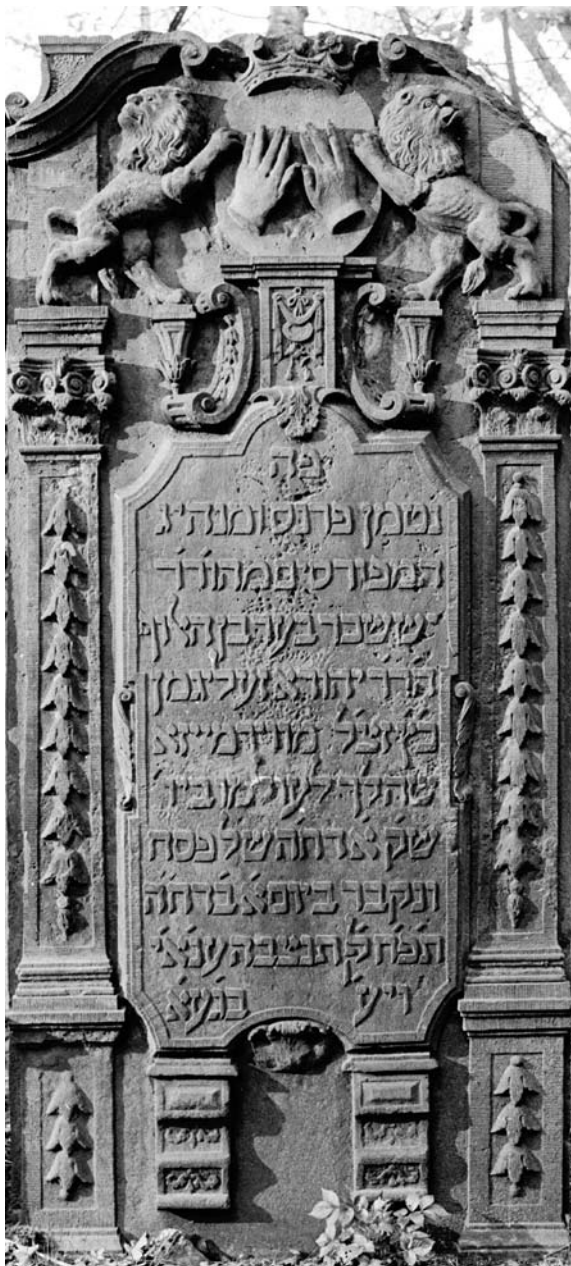 פה
נטמן פרנס ומנהיג
המפורסים מהורר
יששכר בער בן האלוף
הרר יהודא זעליגמן
כץ זצל מווירמייזא
שהלך לעולמו ביו
שק א דחה של פסח
ונקבר ביום א בדחה
תפח לק תנצבה ענאי
ויע בגעא